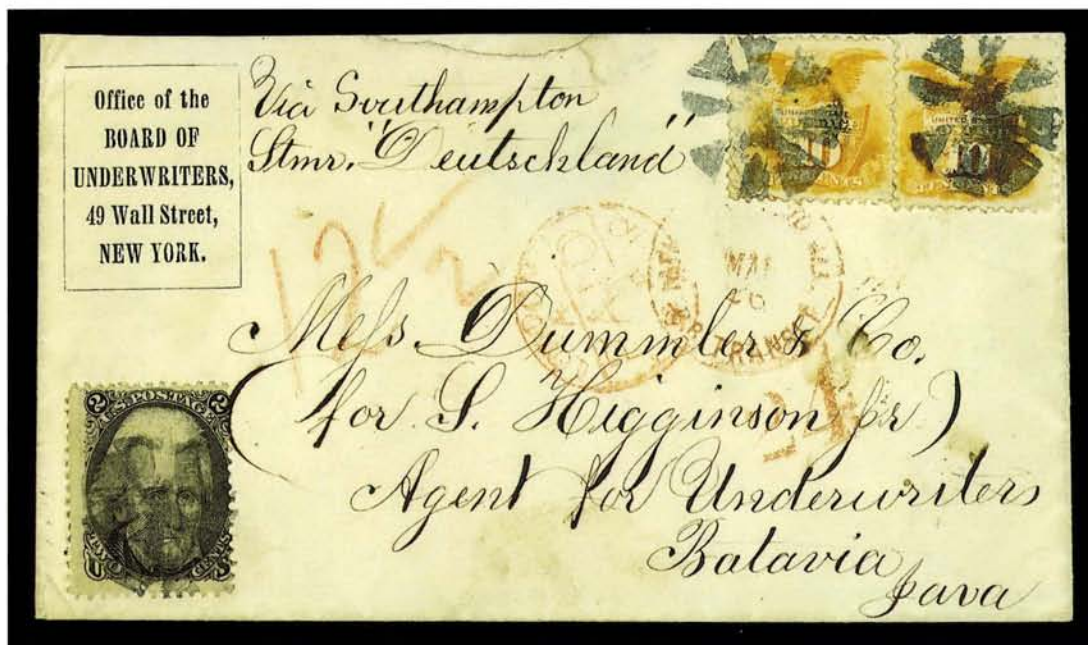 Office of the
BOARD OF
UNDERWRITERS,
49 Wall Street,
NEW YORK.
Via Southampton
Stmr. "Deutschland"
UNITED STATES
10
UNITED STATES
10
TEN CENTS
TRANSIT
Mess. Dummler & Co.
(for S. Higginson Jr)
Agent for Underwriters
Batavia
Java
24
2 U.S. POSTAGE 2